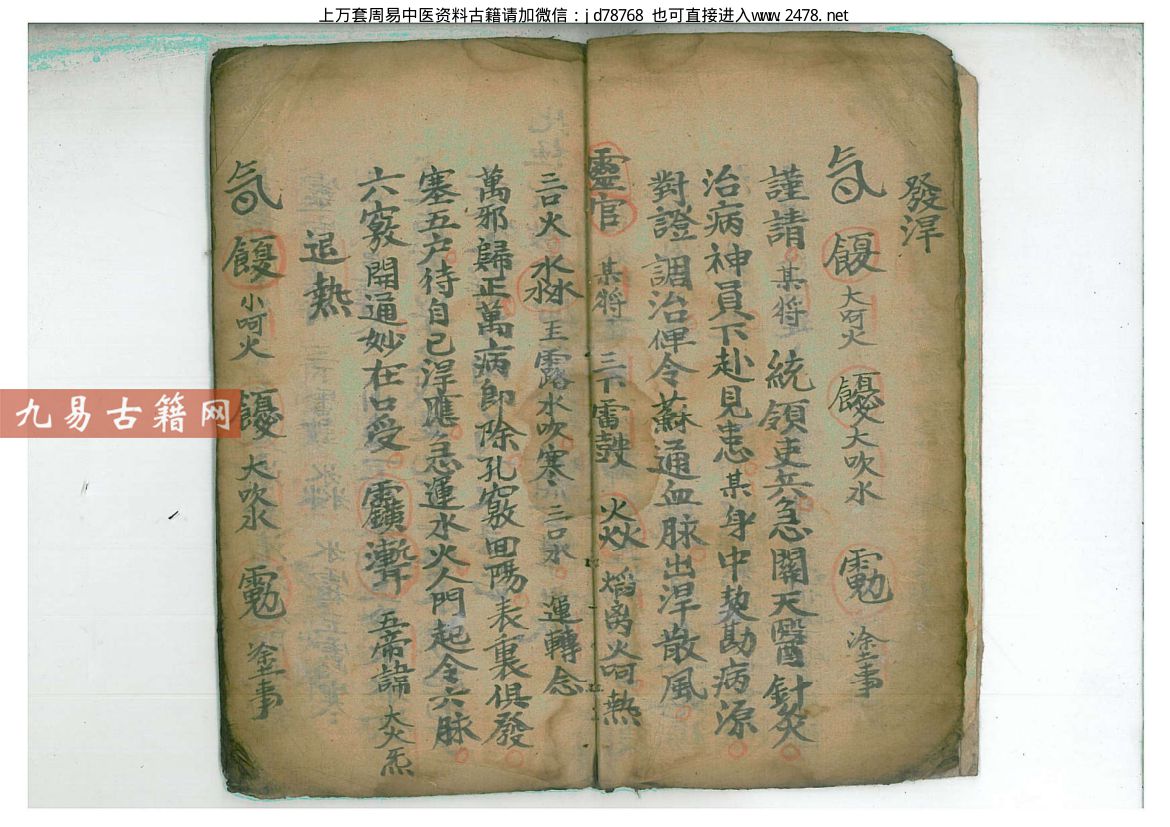 上万套周易中医资料古籍请加微信：jd78768 也可直接进入www.2478.net
發渾
大呵火 大吹水 塗事
謹請某將統領吏兵急關天醫針灸
治病神員下赴見患某身中契勘病源
對證調治俾令蘇通血脉出渾散風
靈官 某將 雷鼓 焱 焰离火呵熱
三口火 淼 玉露水吹寒 三口水 運轉念
萬邪歸正萬病即除孔竅回陽表裏俱發
塞五户待自己渾應急運水火人門起令六脉
六竅開通妙在口受 五帝諱 大火炁
退熱
小呵火 大吹水 塗事
九易古籍网